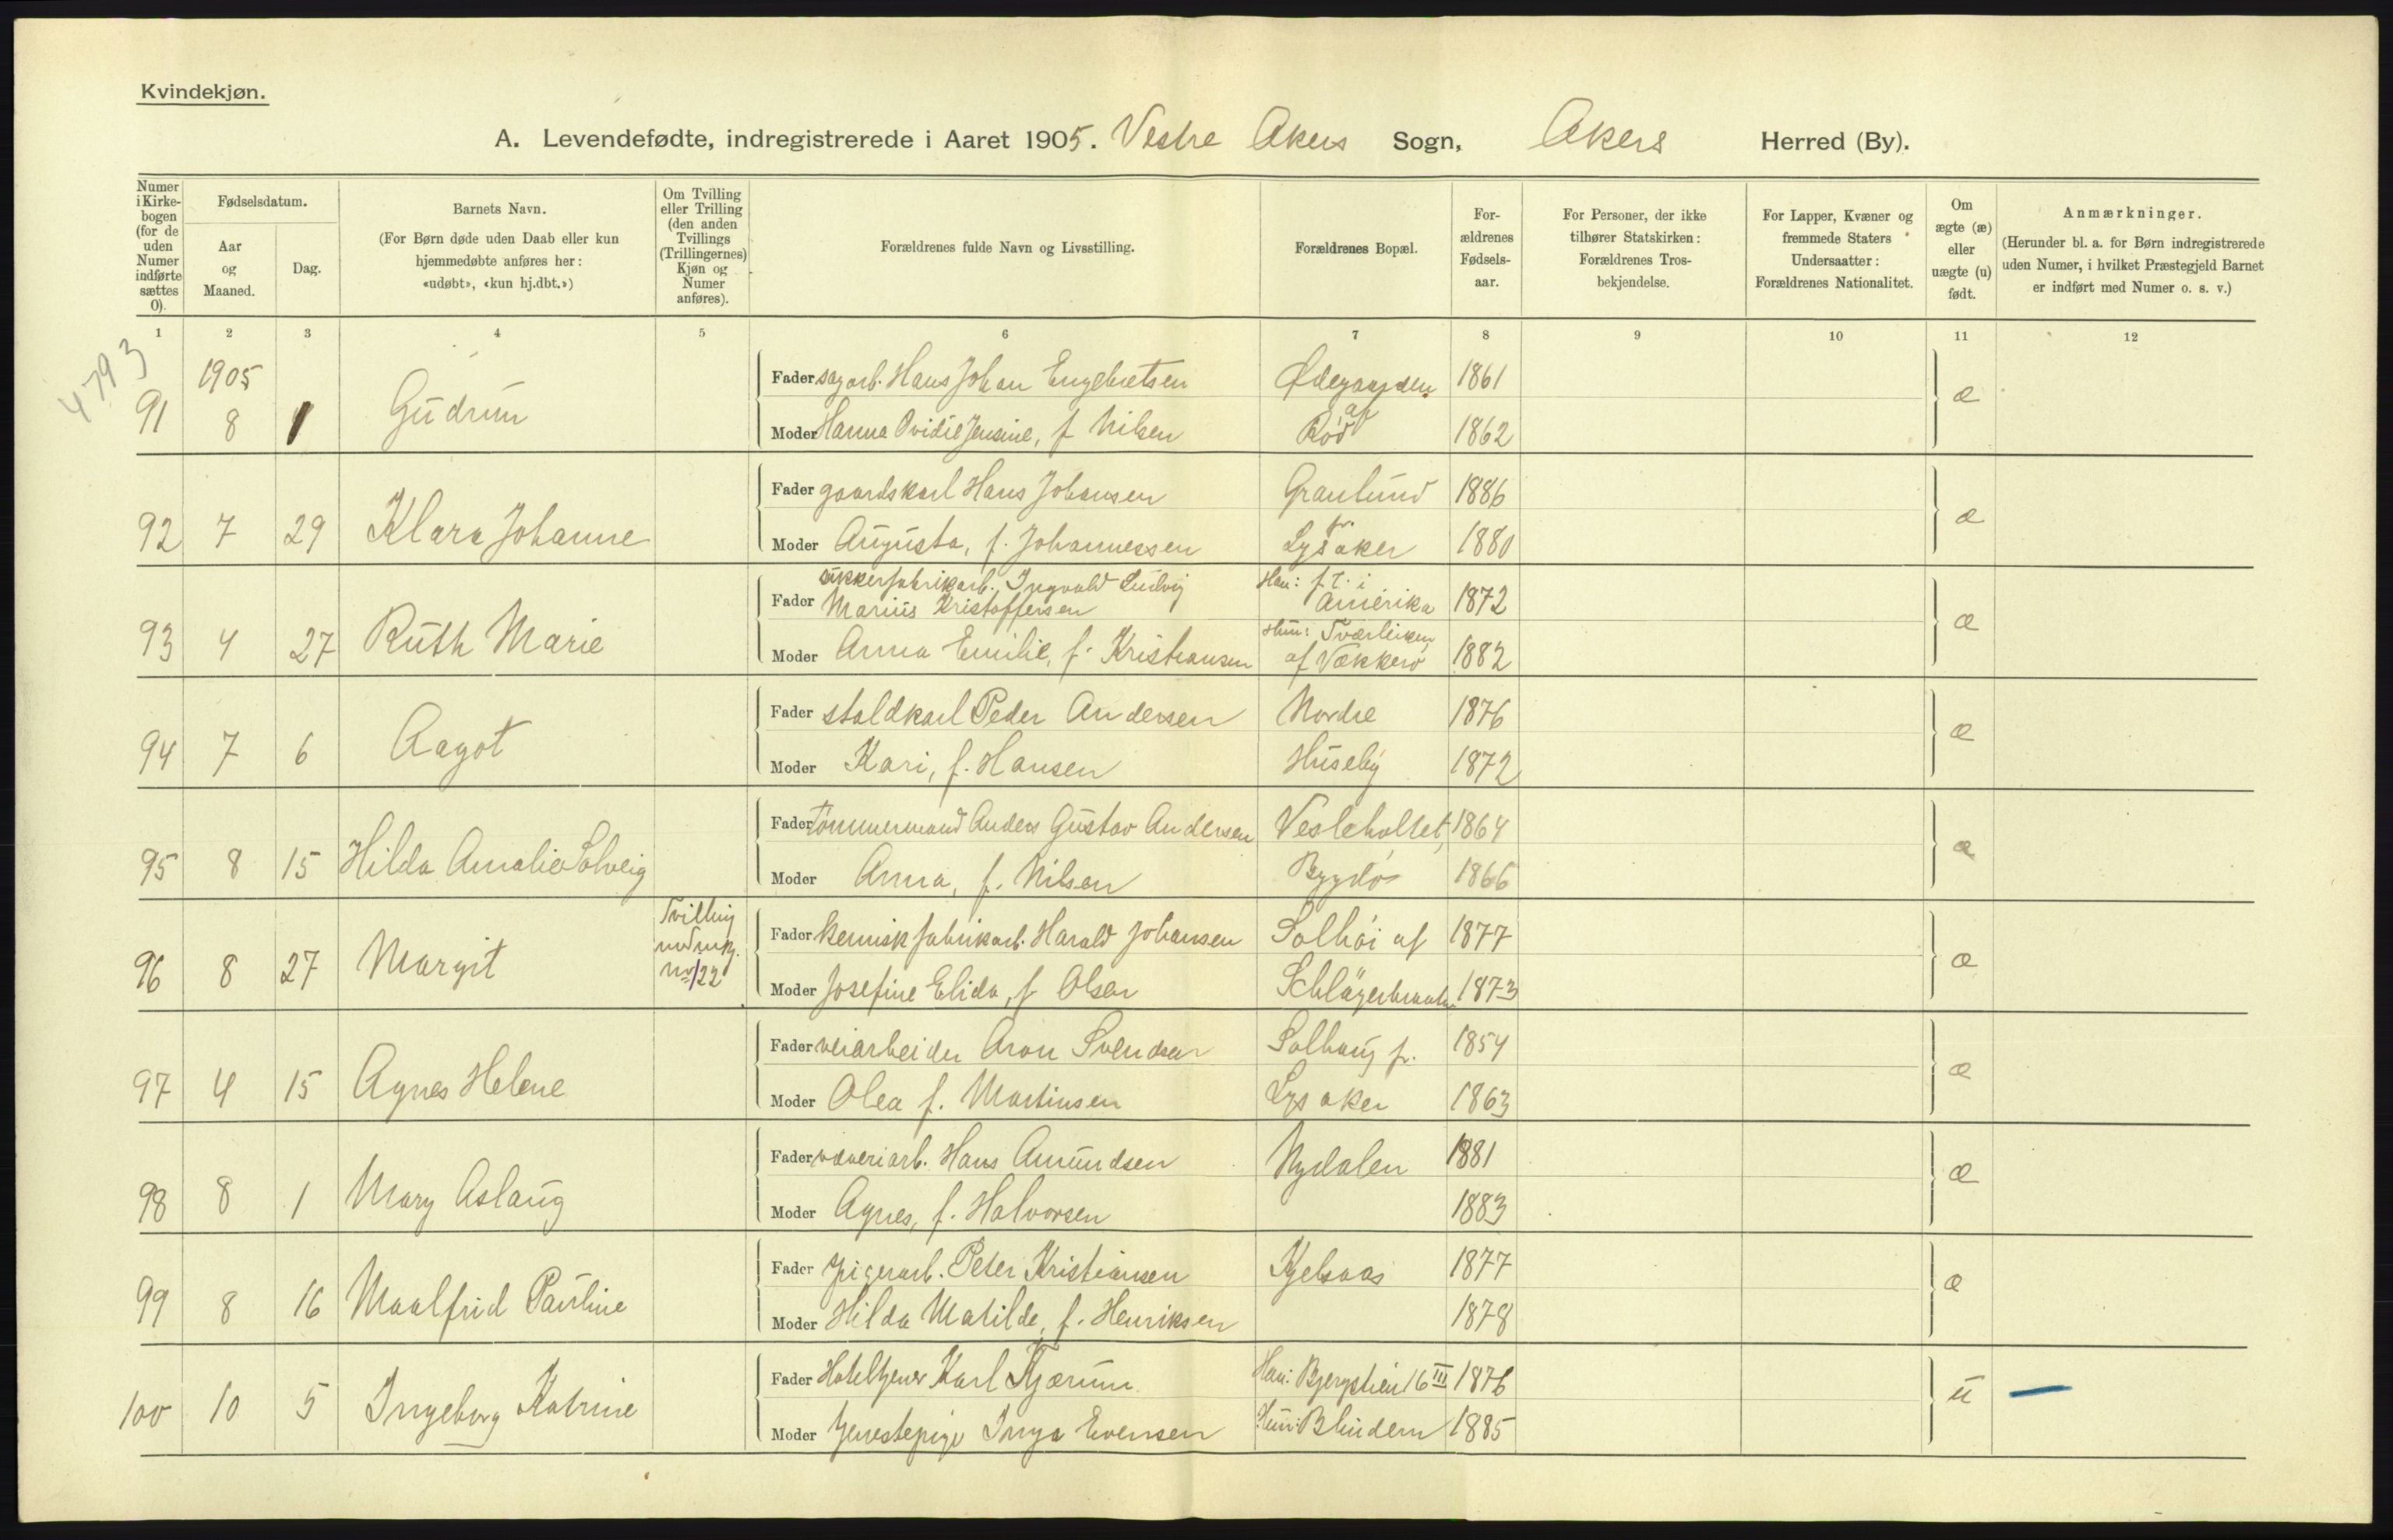 Kvindekjøn.
A. Levendefødte, indregistrerede i Aaret 1905. Vestre Akers Sogn, Akers Herred (By).
Numer i Kirkebogen (for de uden Numer indførte sættes 0).
Fødselsdatum.
Aar og Maaned.
Dag.
Barnets Navn.
(For Børn døde uden Daab eller kun hjemmedøbte anføres her: «udøbt», «kun hj.dbt.»)
Om Tvilling eller Trilling (den anden Tvillings (Trillingernes) Kjøn og Numer anføres).
Forældrenes fulde Navn og Livsstilling.
Forældrenes Bopæl.
Forældrenes Fødselsaar.
For Personer, der ikke tilhører Statskirken: Forældrenes Trosbekjendelse.
For Lapper, Kvæner og fremmede Staters Undersaatter: Forældrenes Nationalitet.
Om ægte (æ) eller uægte (u) født.
Anmærkninger.
(Herunder bl. a. for Børn indregistrerede uden Numer, i hvilket Præstegjeld Barnet er indført med Numer o. s. v.)
1 2 3 4 5 6 7 8 9 10 11 12
4793
1905
91 8 1 Gudrun
Fader sagarb. Hans Johan Engebretsen Ødegaarden 1861 æ
Moder Hanna Ovidie Jensine, f. Nilsen af Rød 1862
92 7 29 Klara Johanne
Fader gaardskarl Hans Johansen Granlund 1886 æ
Moder Augusta, f. Johannessen pr. Lysaker 1880
93 4 27 Ruth Marie
Fader sukkerfabrikarb. Ingvald Ludvig Marius Kristoffersen Han: f.t. i Amerika 1872 æ
Moder Anna Emilie, f. Kristiansen Hun: af Vækkerø 1882
94 7 6 Aagot
Fader staldkarl Peder Andersen Nordre 1876 æ
Moder Kari, f. Hansen Huseby 1872
95 8 15 Hilda Amalie Solveig
Fader tømmermand Anders Gustav Andersen Vesleholtet, 1864 æ
Moder Anna, f. Nilsen Bygdø 1866
96 8 27 Margit Tvilling med mkj. no 122
Fader kemisk fabrikarb. Harald Johansen Solhøi af 1877 æ
Moder Josefine Elida, f. Olsen 1873
97 4 15 Agnes Helene
Fader veiarbeider Aron Svendsen Solhaug pr. 1854 æ
Moder Olea f. Martinsen Lysaker 1863
98 8 1 Mary Aslaug
Fader væveriarb. Hans Amundsen Nydalen 1881 æ
Moder Agnes, f. Halvorsen 1883
99 8 16 Maalfrid Pauline
Fader Peter Kristiansen Kjelsaas 1877 æ
Moder Hilda Matilde, f. Henriksen 1878
100 10 5 Ingeborg Katrine
Fader Hoteltjener Karl Kjærum Han: Bjergstien 16 III 1876 u —
Moder tjenestepige Inga Evensen Hun: Blindern 1885